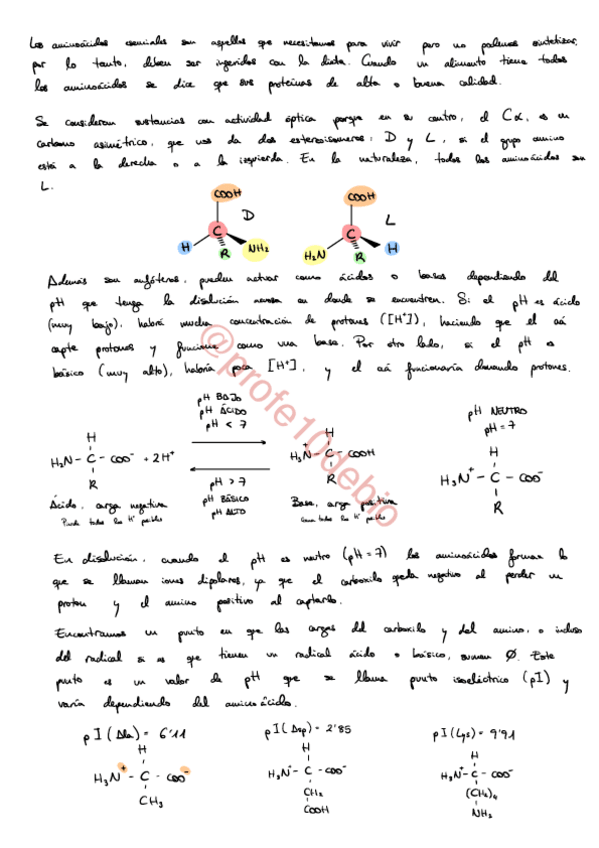 Los aminoácidos esenciales son aquellos que necesitamos para vivir pero no podemos sintetizar,
por lo tanto, deben ser ingeridos con la dieta. Cuando un alimento tiene todos
los aminoácidos se dice que sus proteínas de alta o buena calidad.
Se consideran sustancias con actividad óptica porque en su centro, el Cα, es un
carbono asimétrico, que nos da dos estereoisómeros: D y L, si el grupo amino
está a la derecha o a la izquierda. En la naturaleza, todos los aminoácidos son
L.
COOH
D
C
H
R
NH₂
COOH
L
C
H₂N
R
H
Además son anfóteros, pueden actuar como ácidos o bases dependiendo del
pH que tenga la disolución acuosa en donde se encuentren. Si el pH es ácido
(muy bajo), habrá mucha concentración de protones ([H⁺]), haciendo que el aá
capte protones y funcione como una base. Por otro lado, si el pH es
básico (muy alto), habría poca [H⁺], y el aá funcionaría donando protones.
@profe10debio
pH BAJO
pH ÁCIDO
pH < 7
pH NEUTRO
pH = 7
H
H₂N - C - COO⁻ + 2H⁺
R
H
H₃N⁺ - C - COOH
R
H
H₃N⁺ - C - COO⁻
R
pH > 7
pH BÁSICO
pH ALTO
Ácido, carga negativa
Pierde todos los H⁺ posibles
Base, carga positiva
Gana todos los H⁺ posibles
En disolución, cuando el pH es neutro (pH = 7) los aminoácidos forman lo
que se llaman iones dipolares, ya que el carboxilo queda negativo al perder un
proton y el amino positivo al captarlo.
Encontramos un punto en que las cargas del carboxilo y del amino, o incluso
del radical si es que tienen un radical ácido o básico, suman Ø. Este
punto es un valor de pH que se llama punto isoeléctrico (pI) y
varía dependiendo del aminoácido.
pI (Ala) = 6'11
H
H₃N⁺ - C - COO⁻
CH₃
pI (Asp) = 2'85
H
H₃N⁺ - C - COO⁻
CH₂
COOH
pI (Lys) = 9'91
H
H₃N⁺ - C - COO⁻
(CH₂)₄
NH₂